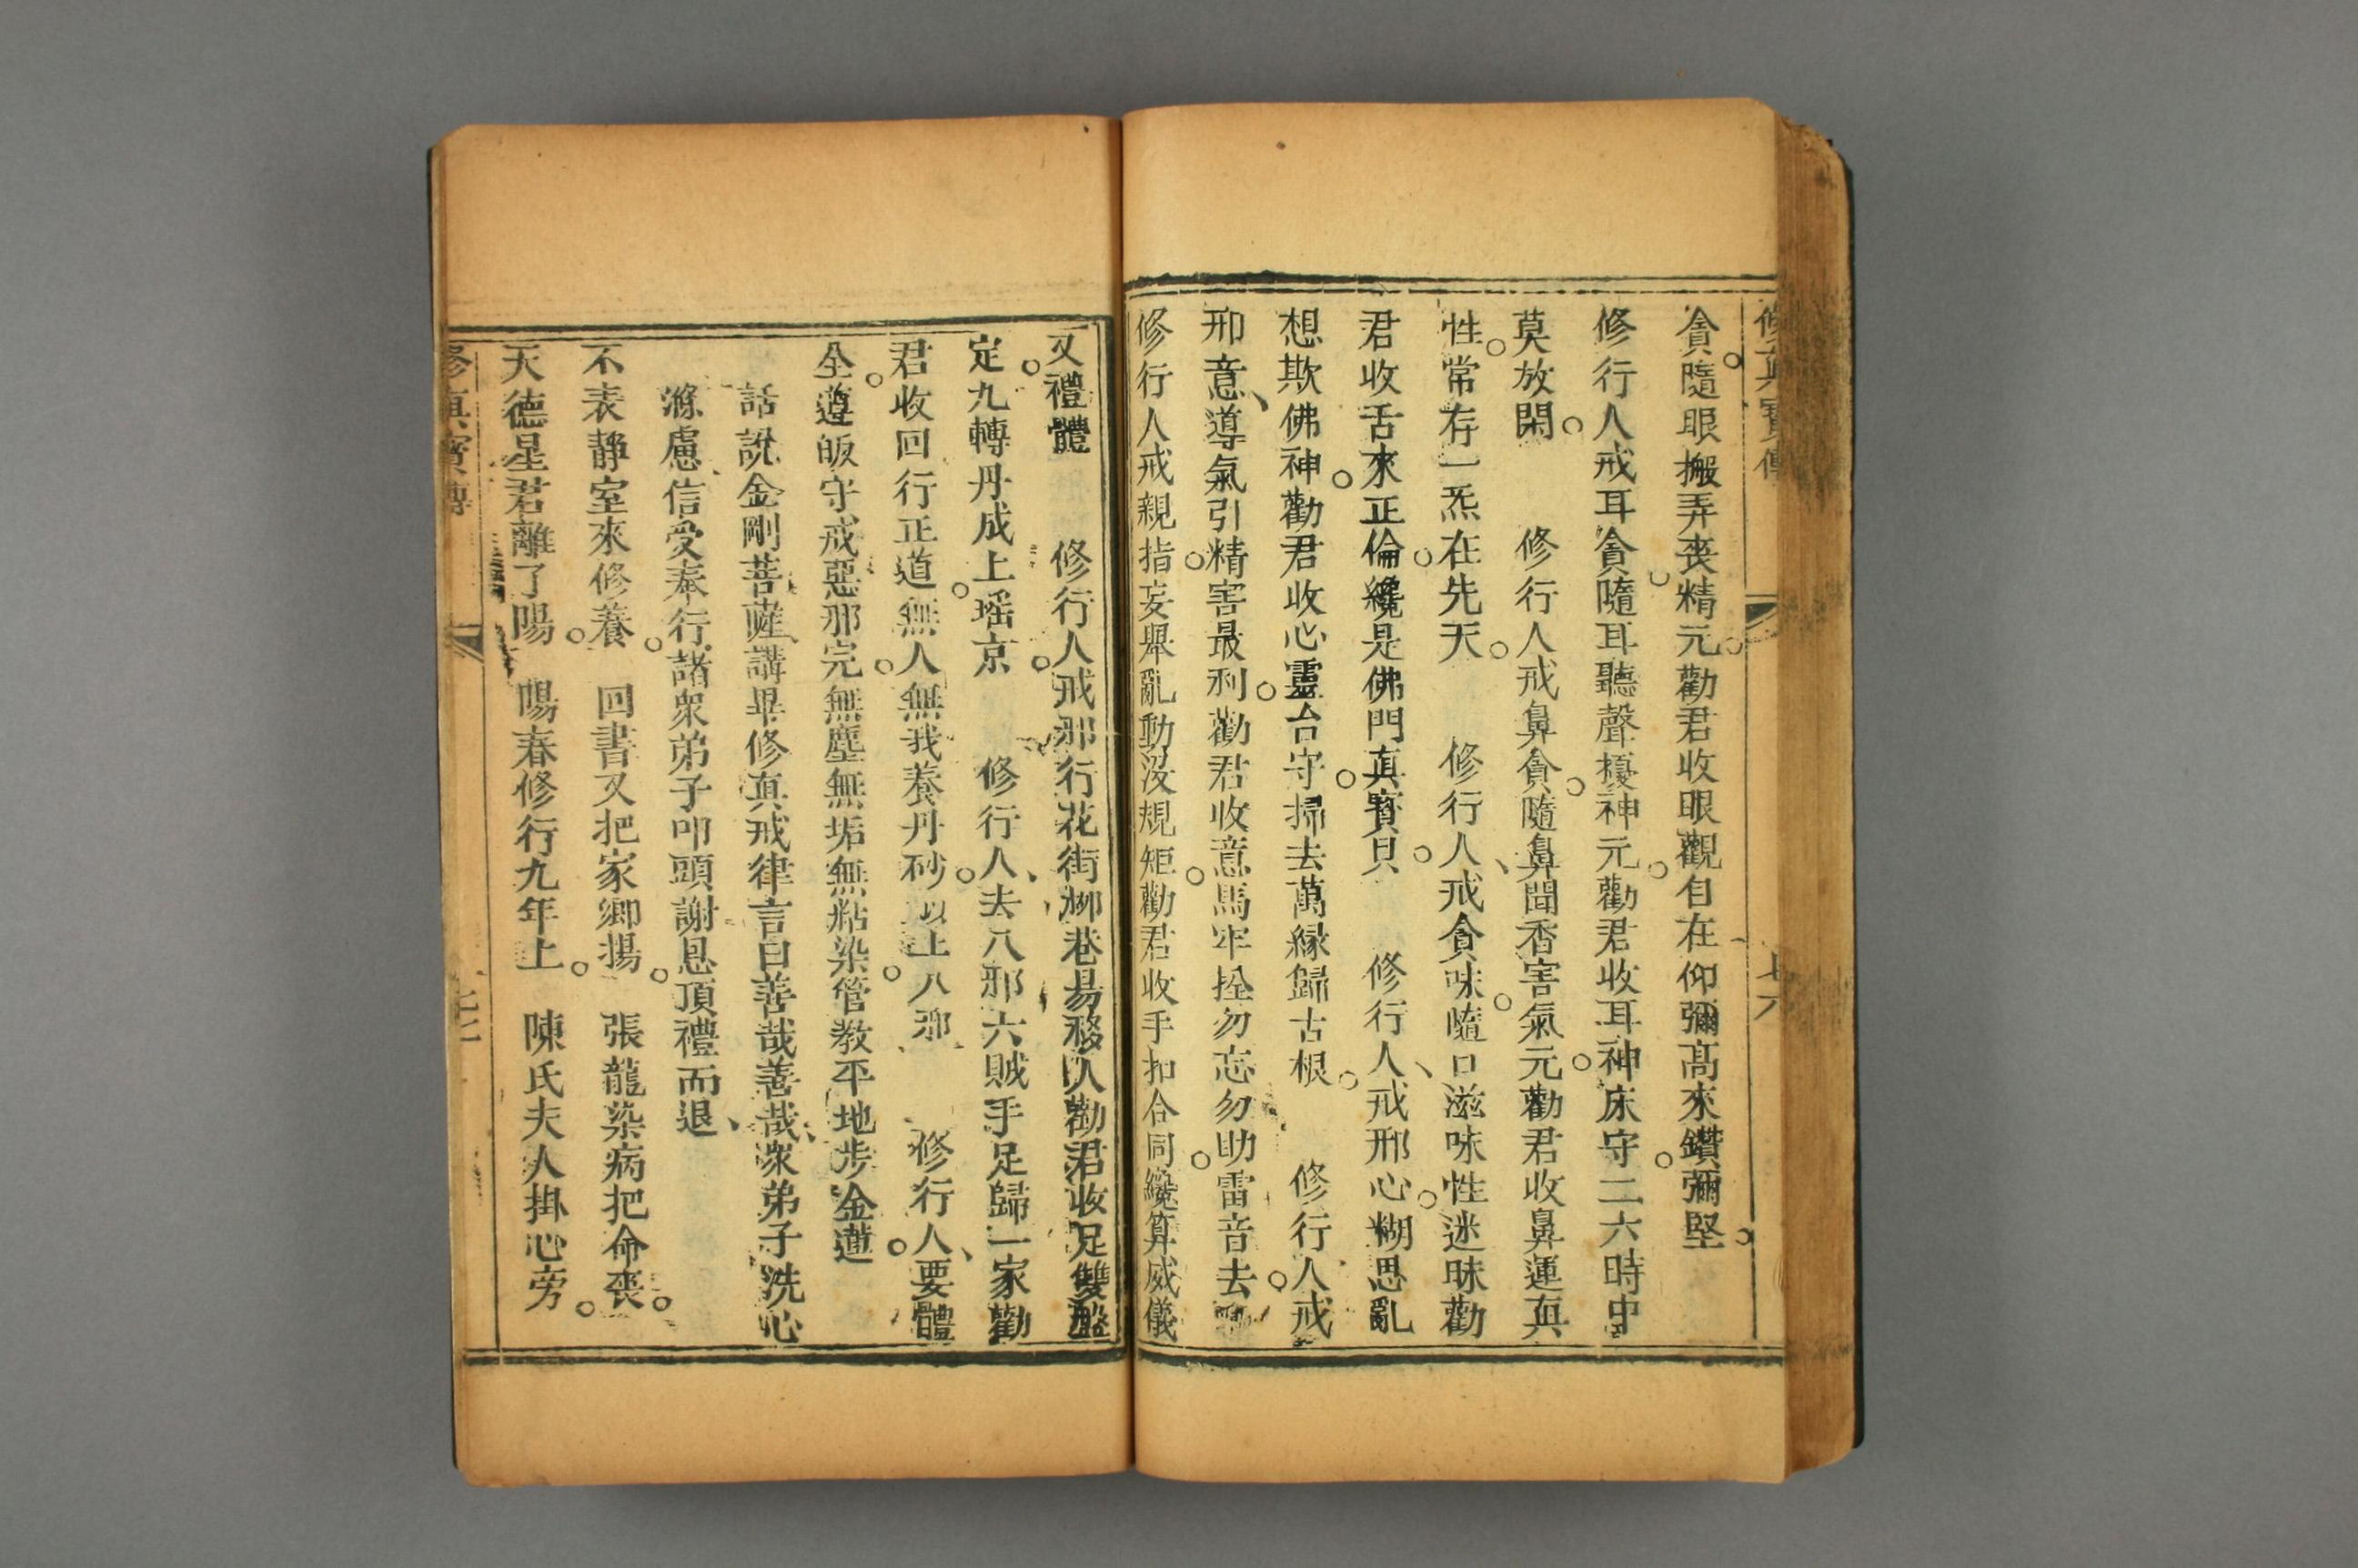 修真寶傳
七六
貪隨眼搬弄喪精元勸君收眼觀自在仰彌高來鑽彌堅
修行人戒耳貪隨耳聽聲擾神元勸君收耳神床守二六時中
莫放閑 修行人戒鼻貪隨鼻聞香害氣元勸君收鼻運真
性常存一炁在先天 修行人戒貪味隨口滋味性迷昧勸
君收舌來正倫纔是佛門真寳貝 修行人戒邪心糊思亂
想欺佛神勸君收心靈台守掃去萬緣歸古根 修行人戒
邪意導氣引精害最利勸君收意馬牢拴勿忘勿助雷音去
修行人戒親指妄舉亂動沒規矩勸君收手扣合同纔算威儀
又禮體 修行人戒邪行花街柳巷易移人勸君收足雙盤
定九轉丹成上瑤京 修行人去八邪六賊手足歸一家勸
君收回行正道無人無我養丹砂以上八邪 修行人要體
全遵皈守戒惡那完無塵無垢無粘染管教平地步金蓮
話說金剛菩薩講畢修真戒律言曰善哉善哉衆弟子洗心
滌慮信受奉行諸衆弟子叩頭謝恩頂禮而退
不表靜室來修養 回書又把家鄉揚 張龍染病把命喪
天德星君離了陽 陽春修行九年上 陳氏夫人掛心旁
修真寳傳
七七